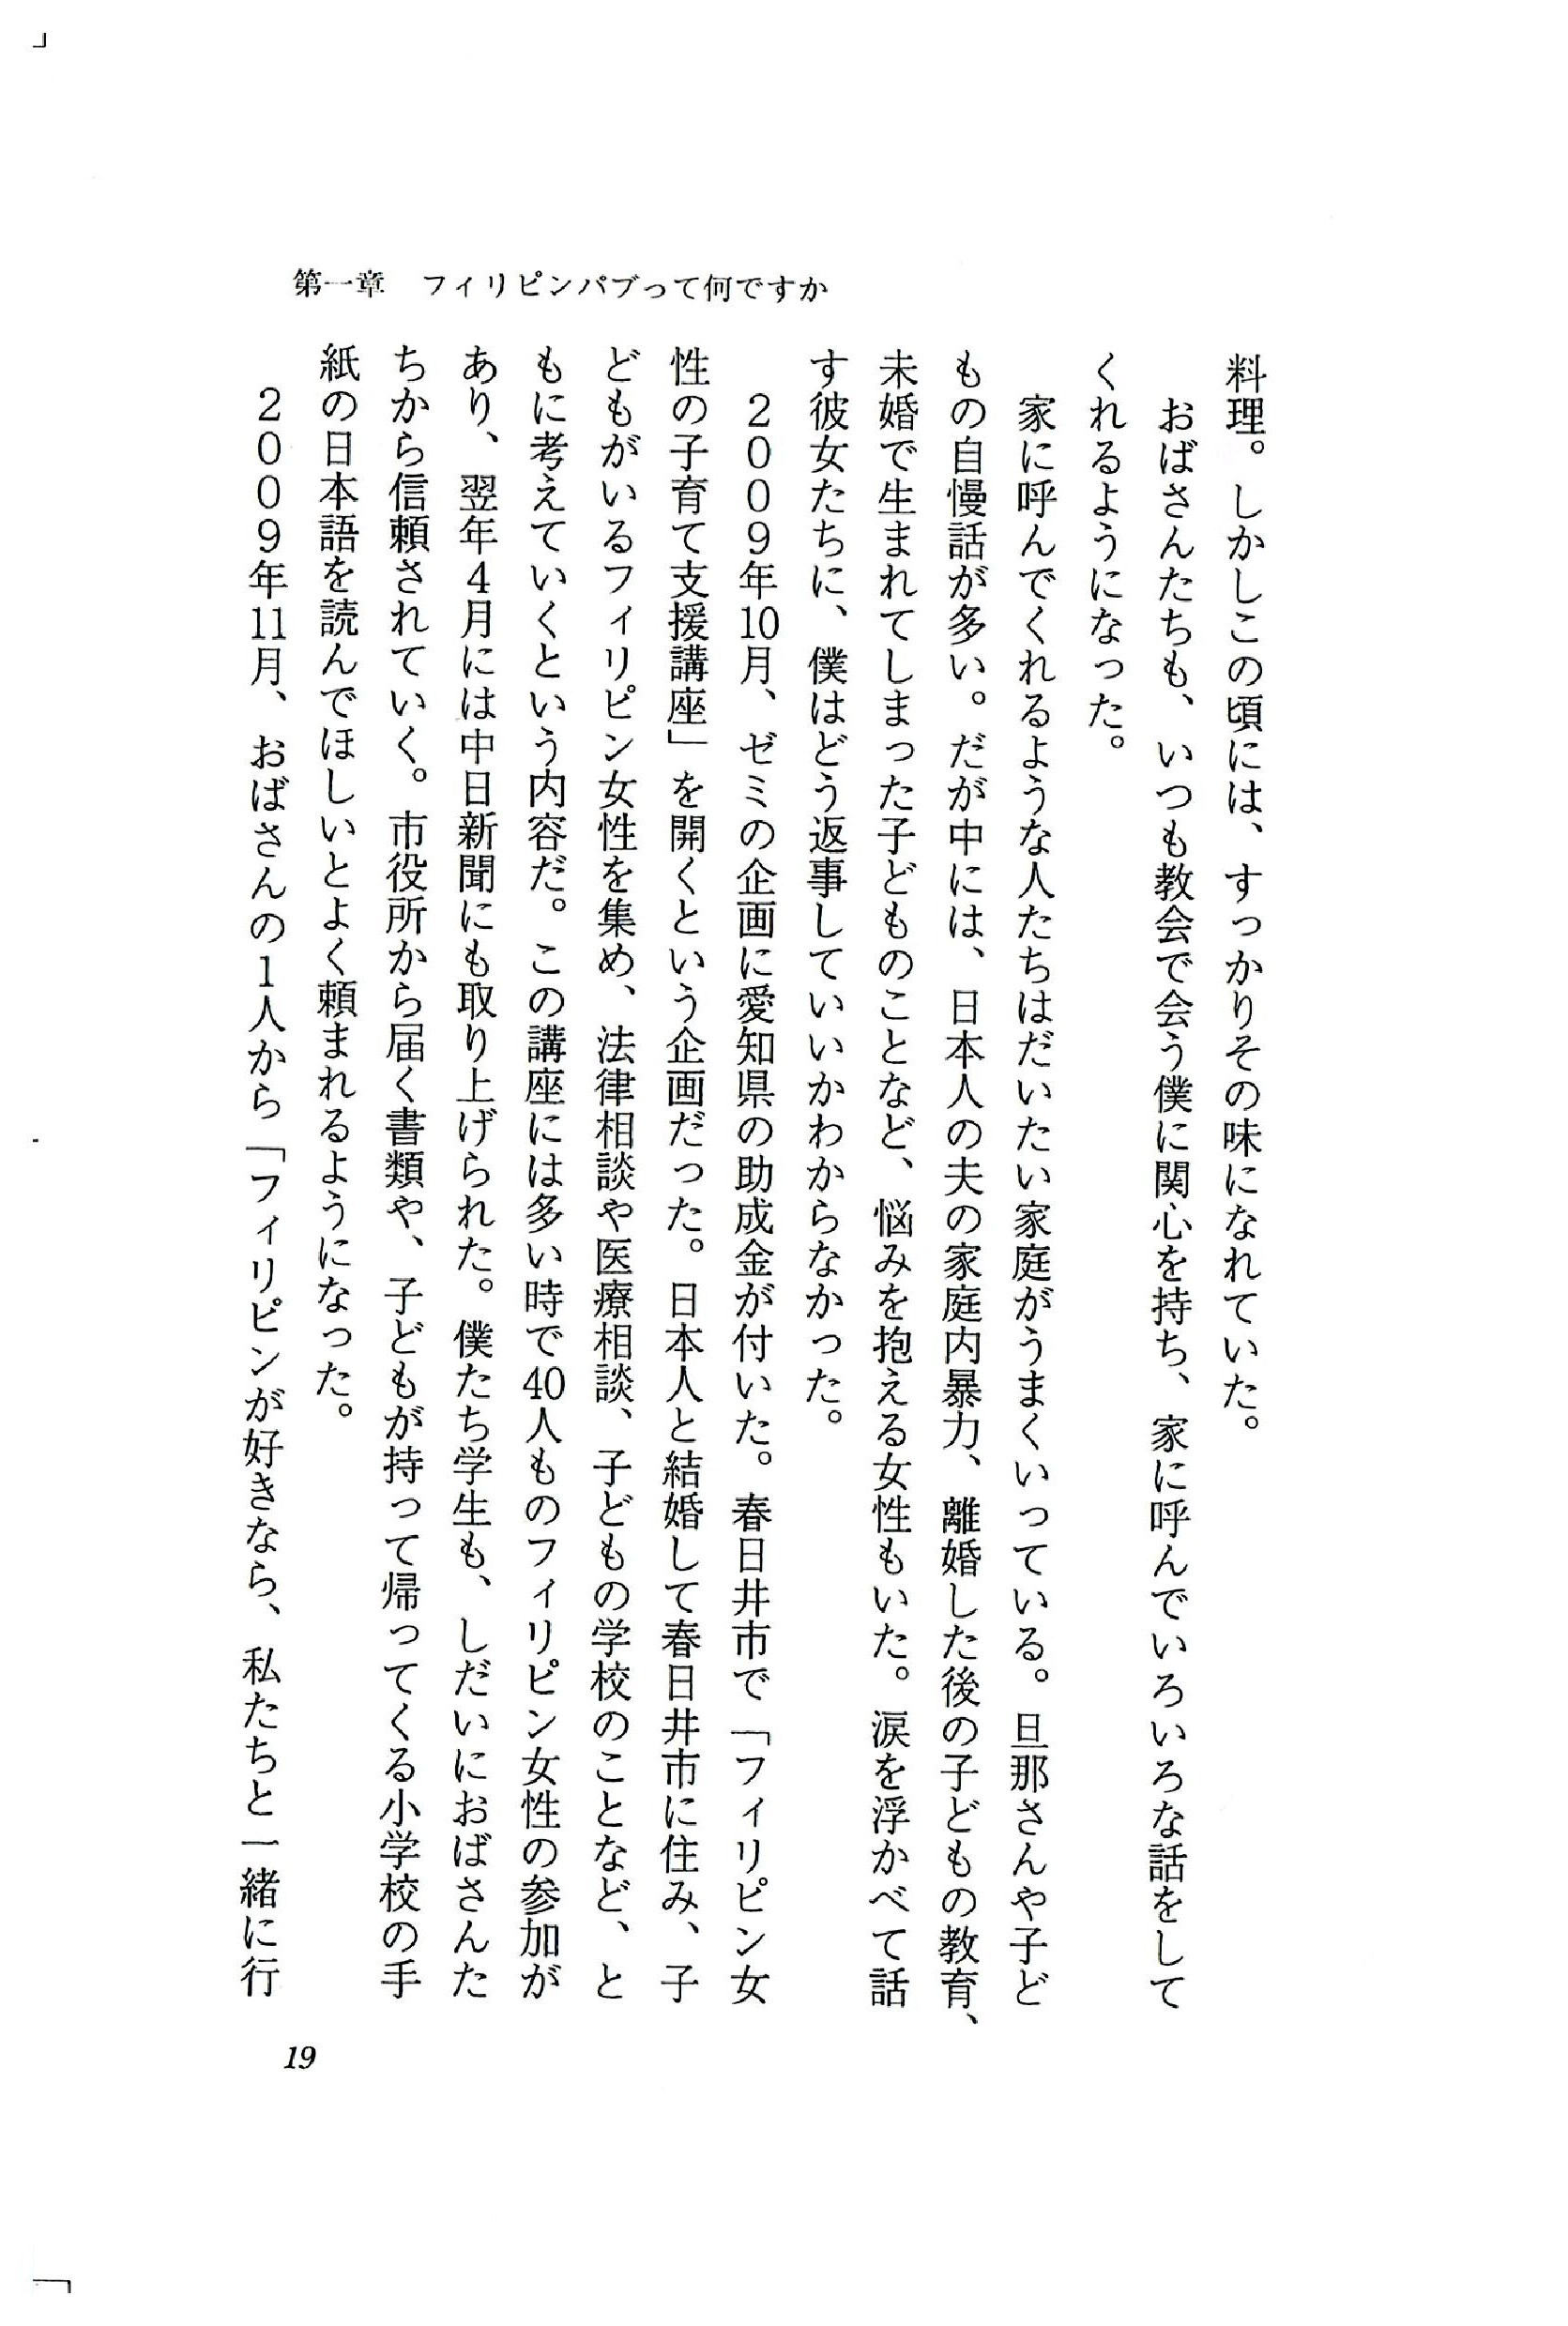 第一章　フィリピンパブって何ですか
料理。しかしこの頃には、すっかりその味になれていた。
　おばさんたちも、いつも教会で会う僕に関心を持ち、家に呼んでいろいろな話をして
くれるようになった。
　家に呼んでくれるような人たちはだいたい家庭がうまくいっている。旦那さんや子ど
もの自慢話が多い。だが中には、日本人の夫の家庭内暴力、離婚した後の子どもの教育、
未婚で生まれてしまった子どものことなど、悩みを抱える女性もいた。涙を浮かべて話
す彼女たちに、僕はどう返事していいかわからなかった。
　２００９年10月、ゼミの企画に愛知県の助成金が付いた。春日井市で「フィリピン女
性の子育て支援講座」を開くという企画だった。日本人と結婚して春日井市に住み、子
どもがいるフィリピン女性を集め、法律相談や医療相談、子どもの学校のことなど、と
もに考えていくという内容だ。この講座には多い時で40人ものフィリピン女性の参加が
あり、翌年４月には中日新聞にも取り上げられた。僕たち学生も、しだいにおばさんた
ちから信頼されていく。市役所から届く書類や、子どもが持って帰ってくる小学校の手
紙の日本語を読んでほしいとよく頼まれるようになった。
　２００９年11月、おばさんの１人から「フィリピンが好きなら、私たちと一緒に行
19